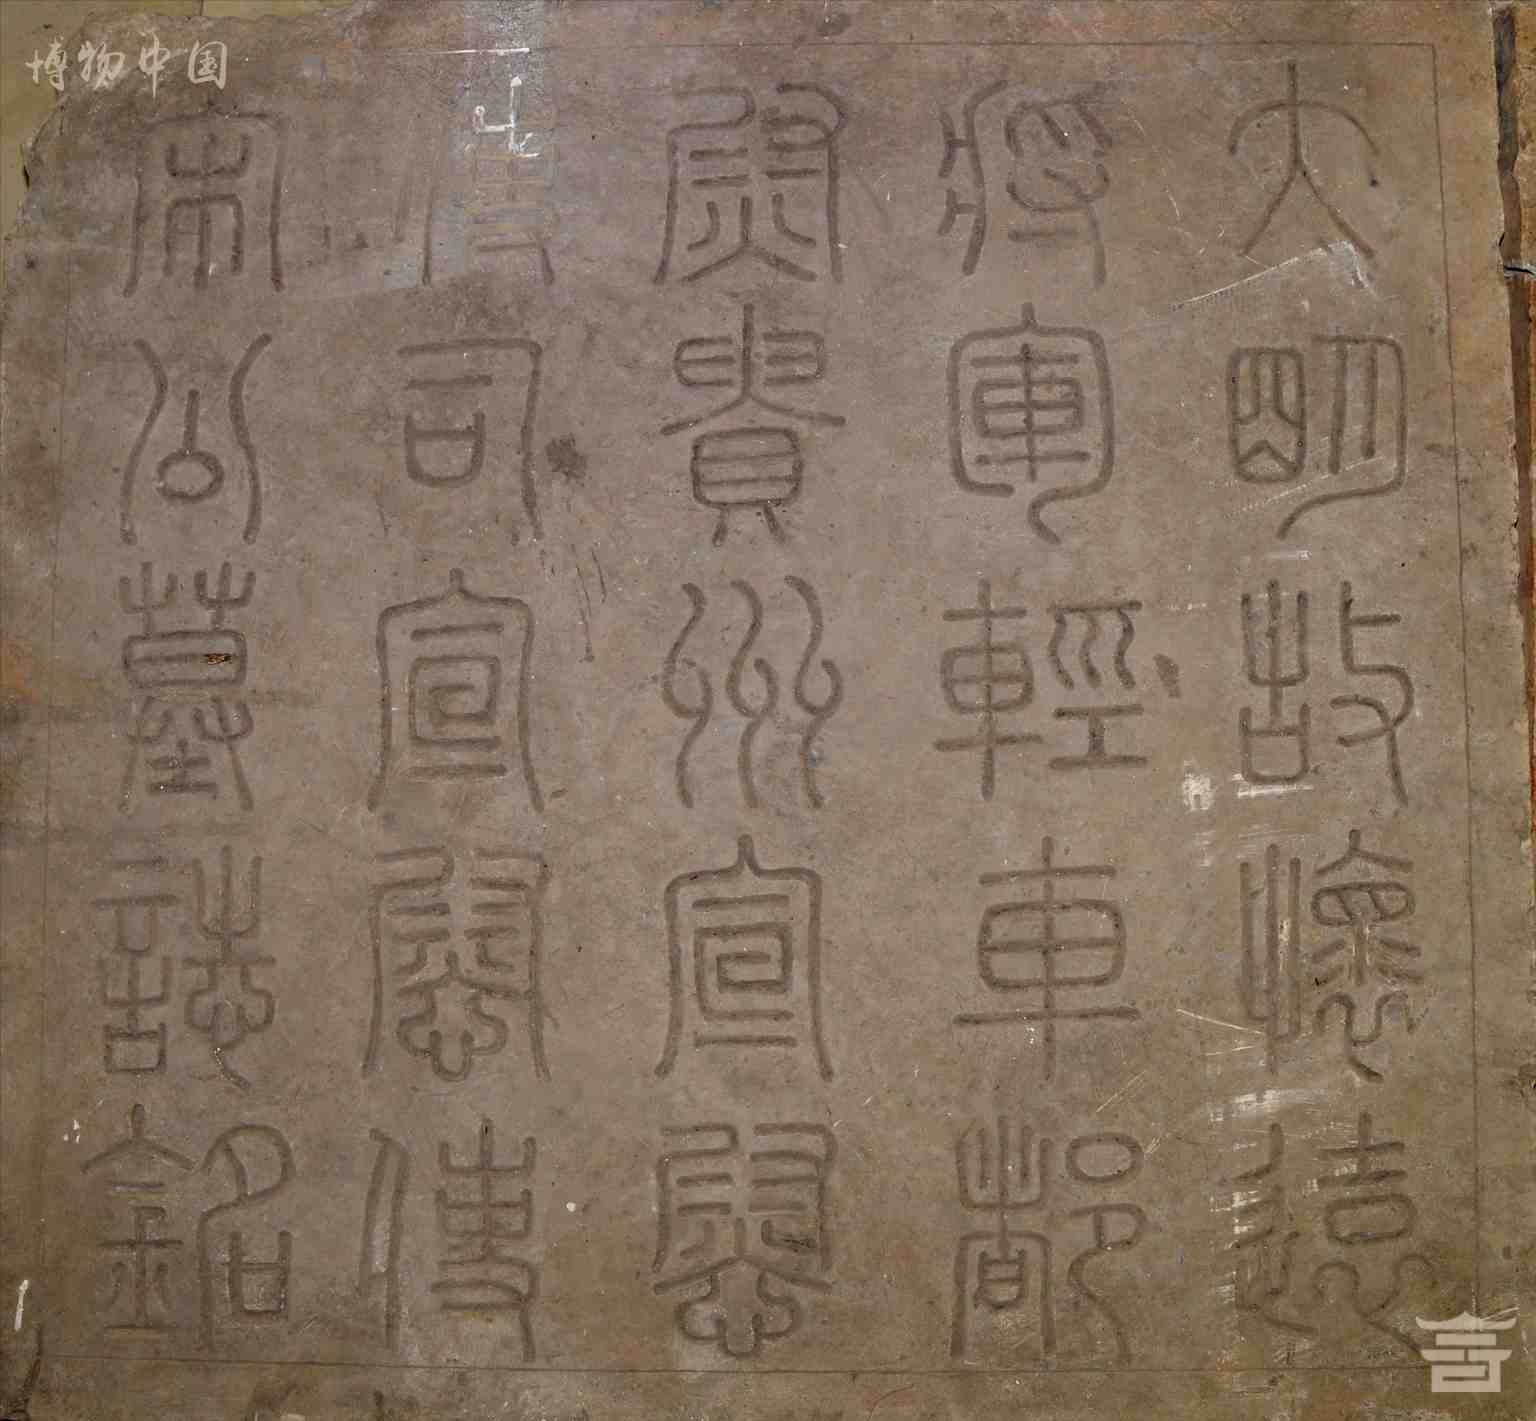 大明故懷遠
將軍輕車都
尉貴州宣慰
使司宣慰使
宋公墓誌銘
博物中国